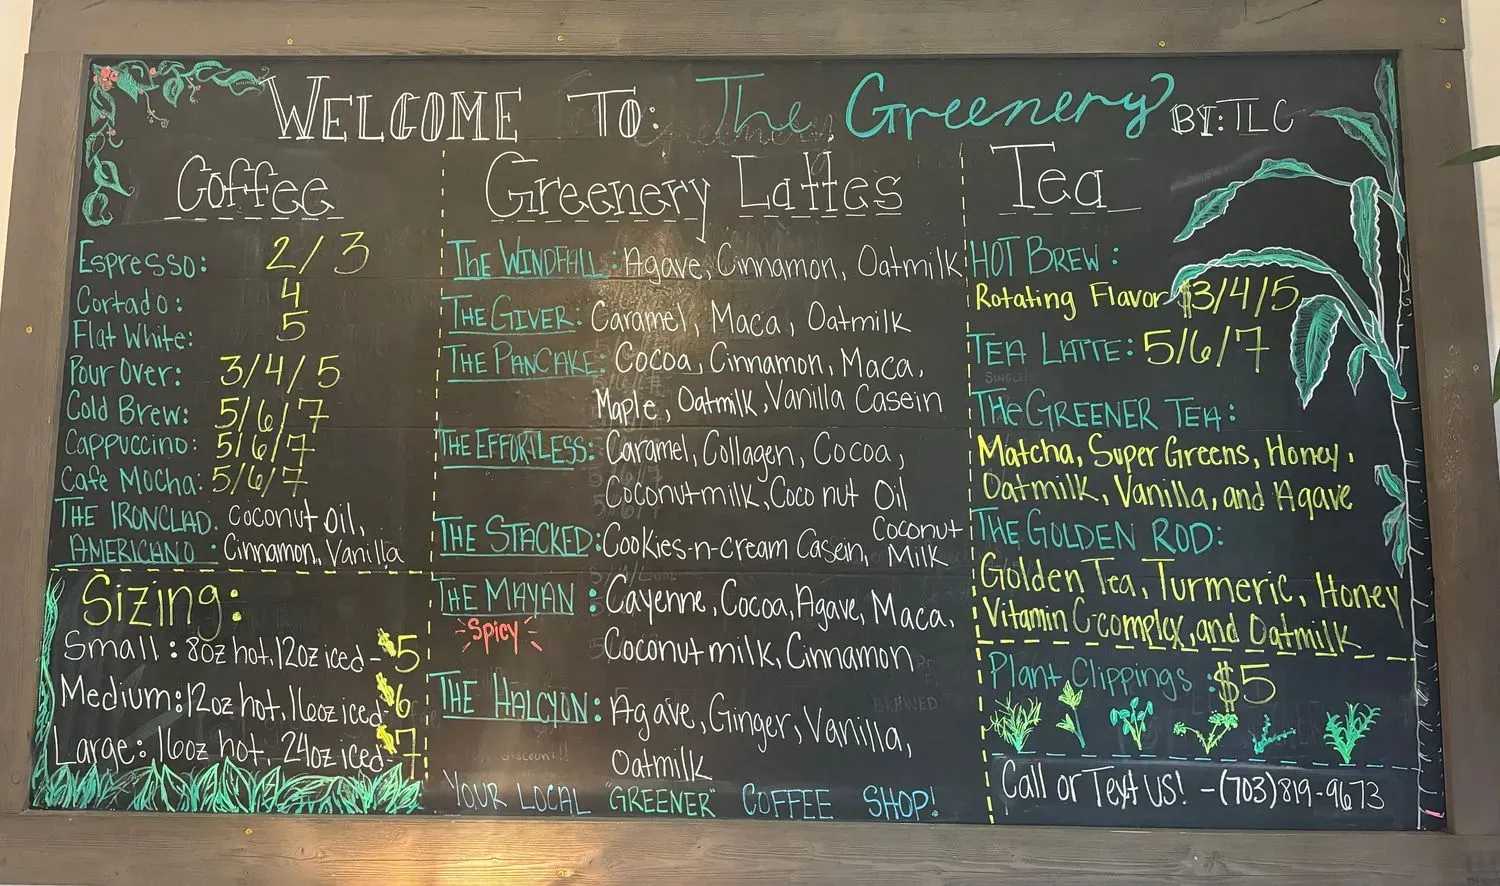 WELCOME TO: The Greenery BY: TLC
Coffee
Espresso: 2/3
Cortado: 4
Flat White: 5
Pour Over: 3/4/5
Cold Brew: 5/6/7
Cappuccino: 5/6/7
Cafe Mocha: 5/6/7
THE IRONCLAD. Coconut Oil,
AMERICANO: Cinnamon, Vanilla
Sizing:
Small: 8oz hot, 12oz iced - $5
Medium: 12oz hot, 16oz iced - $6
Large: 16oz hot, 24oz iced - $7
Greenery Lattes
THE WINDFALL: Agave, Cinnamon, Oatmilk
THE GIVER: Caramel, Maca, Oatmilk
THE PANCAKE: Cocoa, Cinnamon, Maca,
Maple, Oatmilk, Vanilla Casein
THE EFFORTLESS: Caramel, Collagen, Cocoa,
Coconutmilk, Coconut Oil
THE STACKED: Cookies-n-cream Casein, Coconut
Milk
THE MAYAN: Cayenne, Cocoa, Agave, Maca,
Spicy
Coconutmilk, Cinnamon
THE HALCYON: Agave, Ginger, Vanilla,
Oatmilk
YOUR LOCAL "GREENER" COFFEE SHOP!
Tea
HOT BREW:
Rotating Flavor $3/4/5
TEA LATTE: 5/6/7
SINGLE
THE GREENER TEA:
Matcha, Super Greens, Honey,
Oatmilk, Vanilla, and Agave
THE GOLDEN ROD:
Golden Tea, Turmeric, Honey
Vitamin C-complex, and Oatmilk
Plant Clippings: $5
Call or Text US! - (703)819-9673